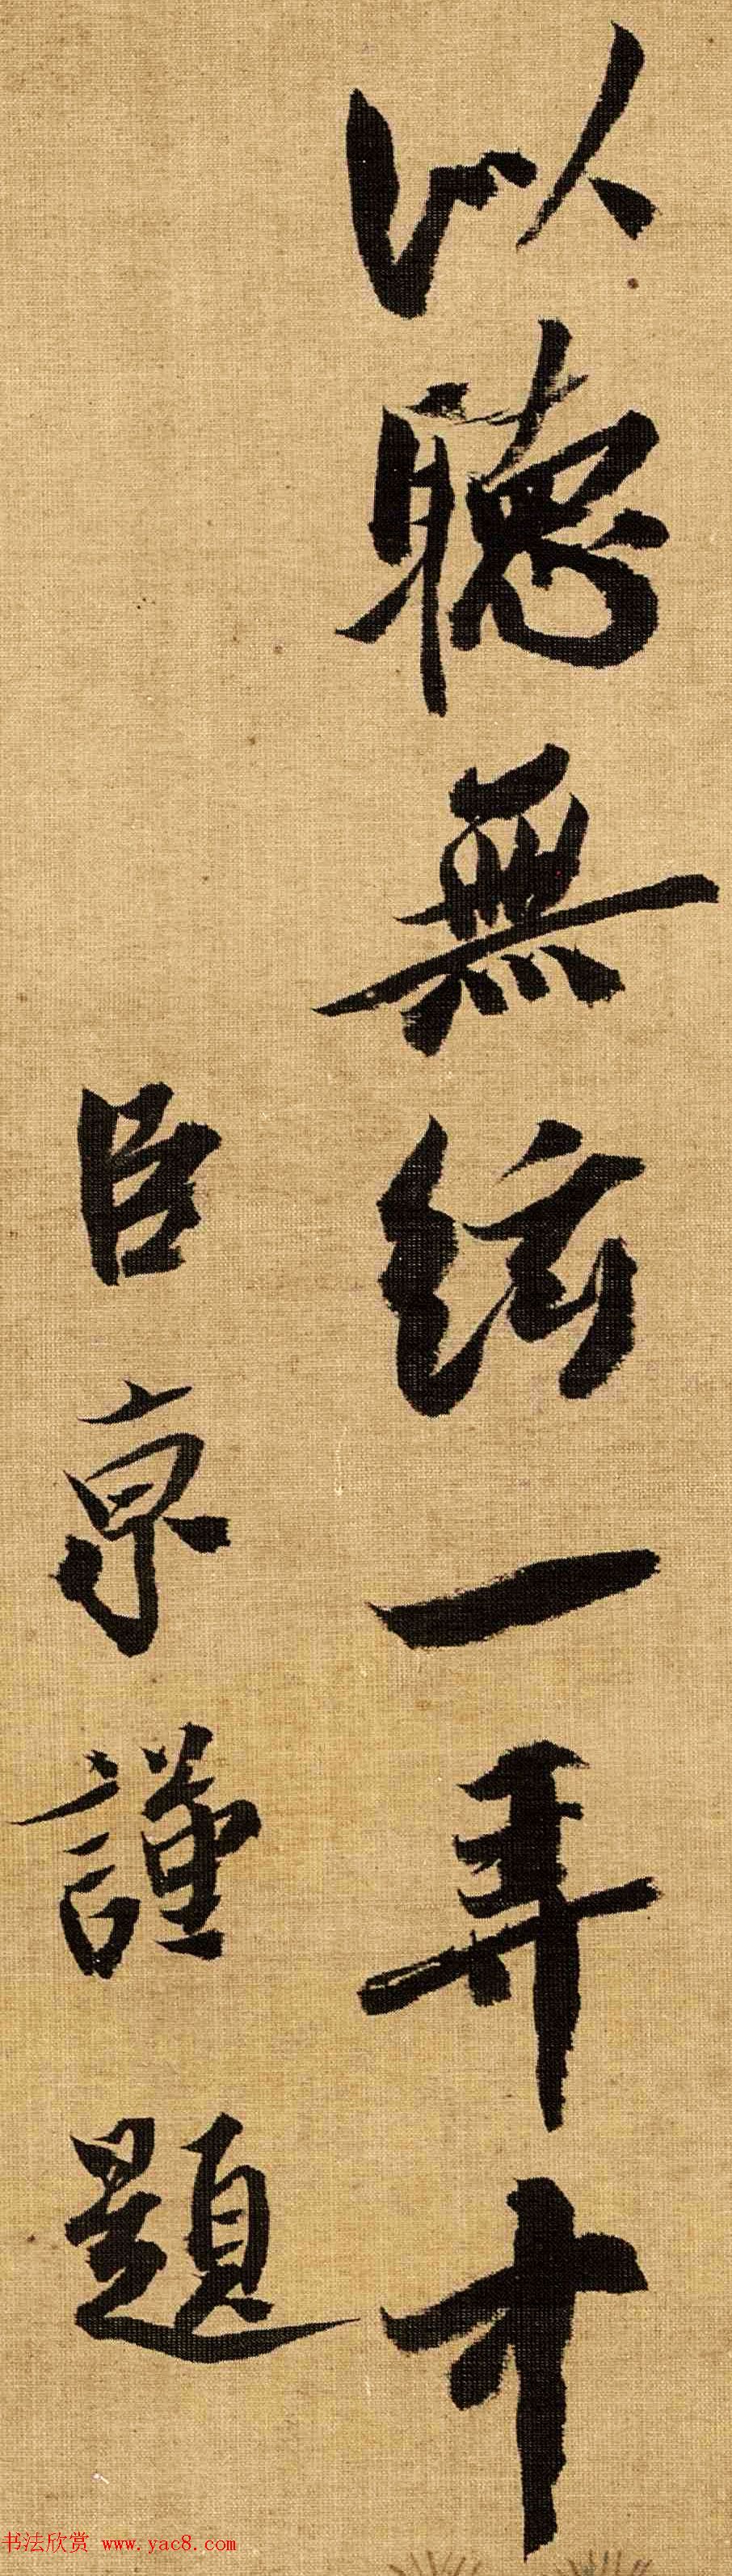 以聽無絃一弄中
臣京謹題
书法欣赏 www.yac8.com